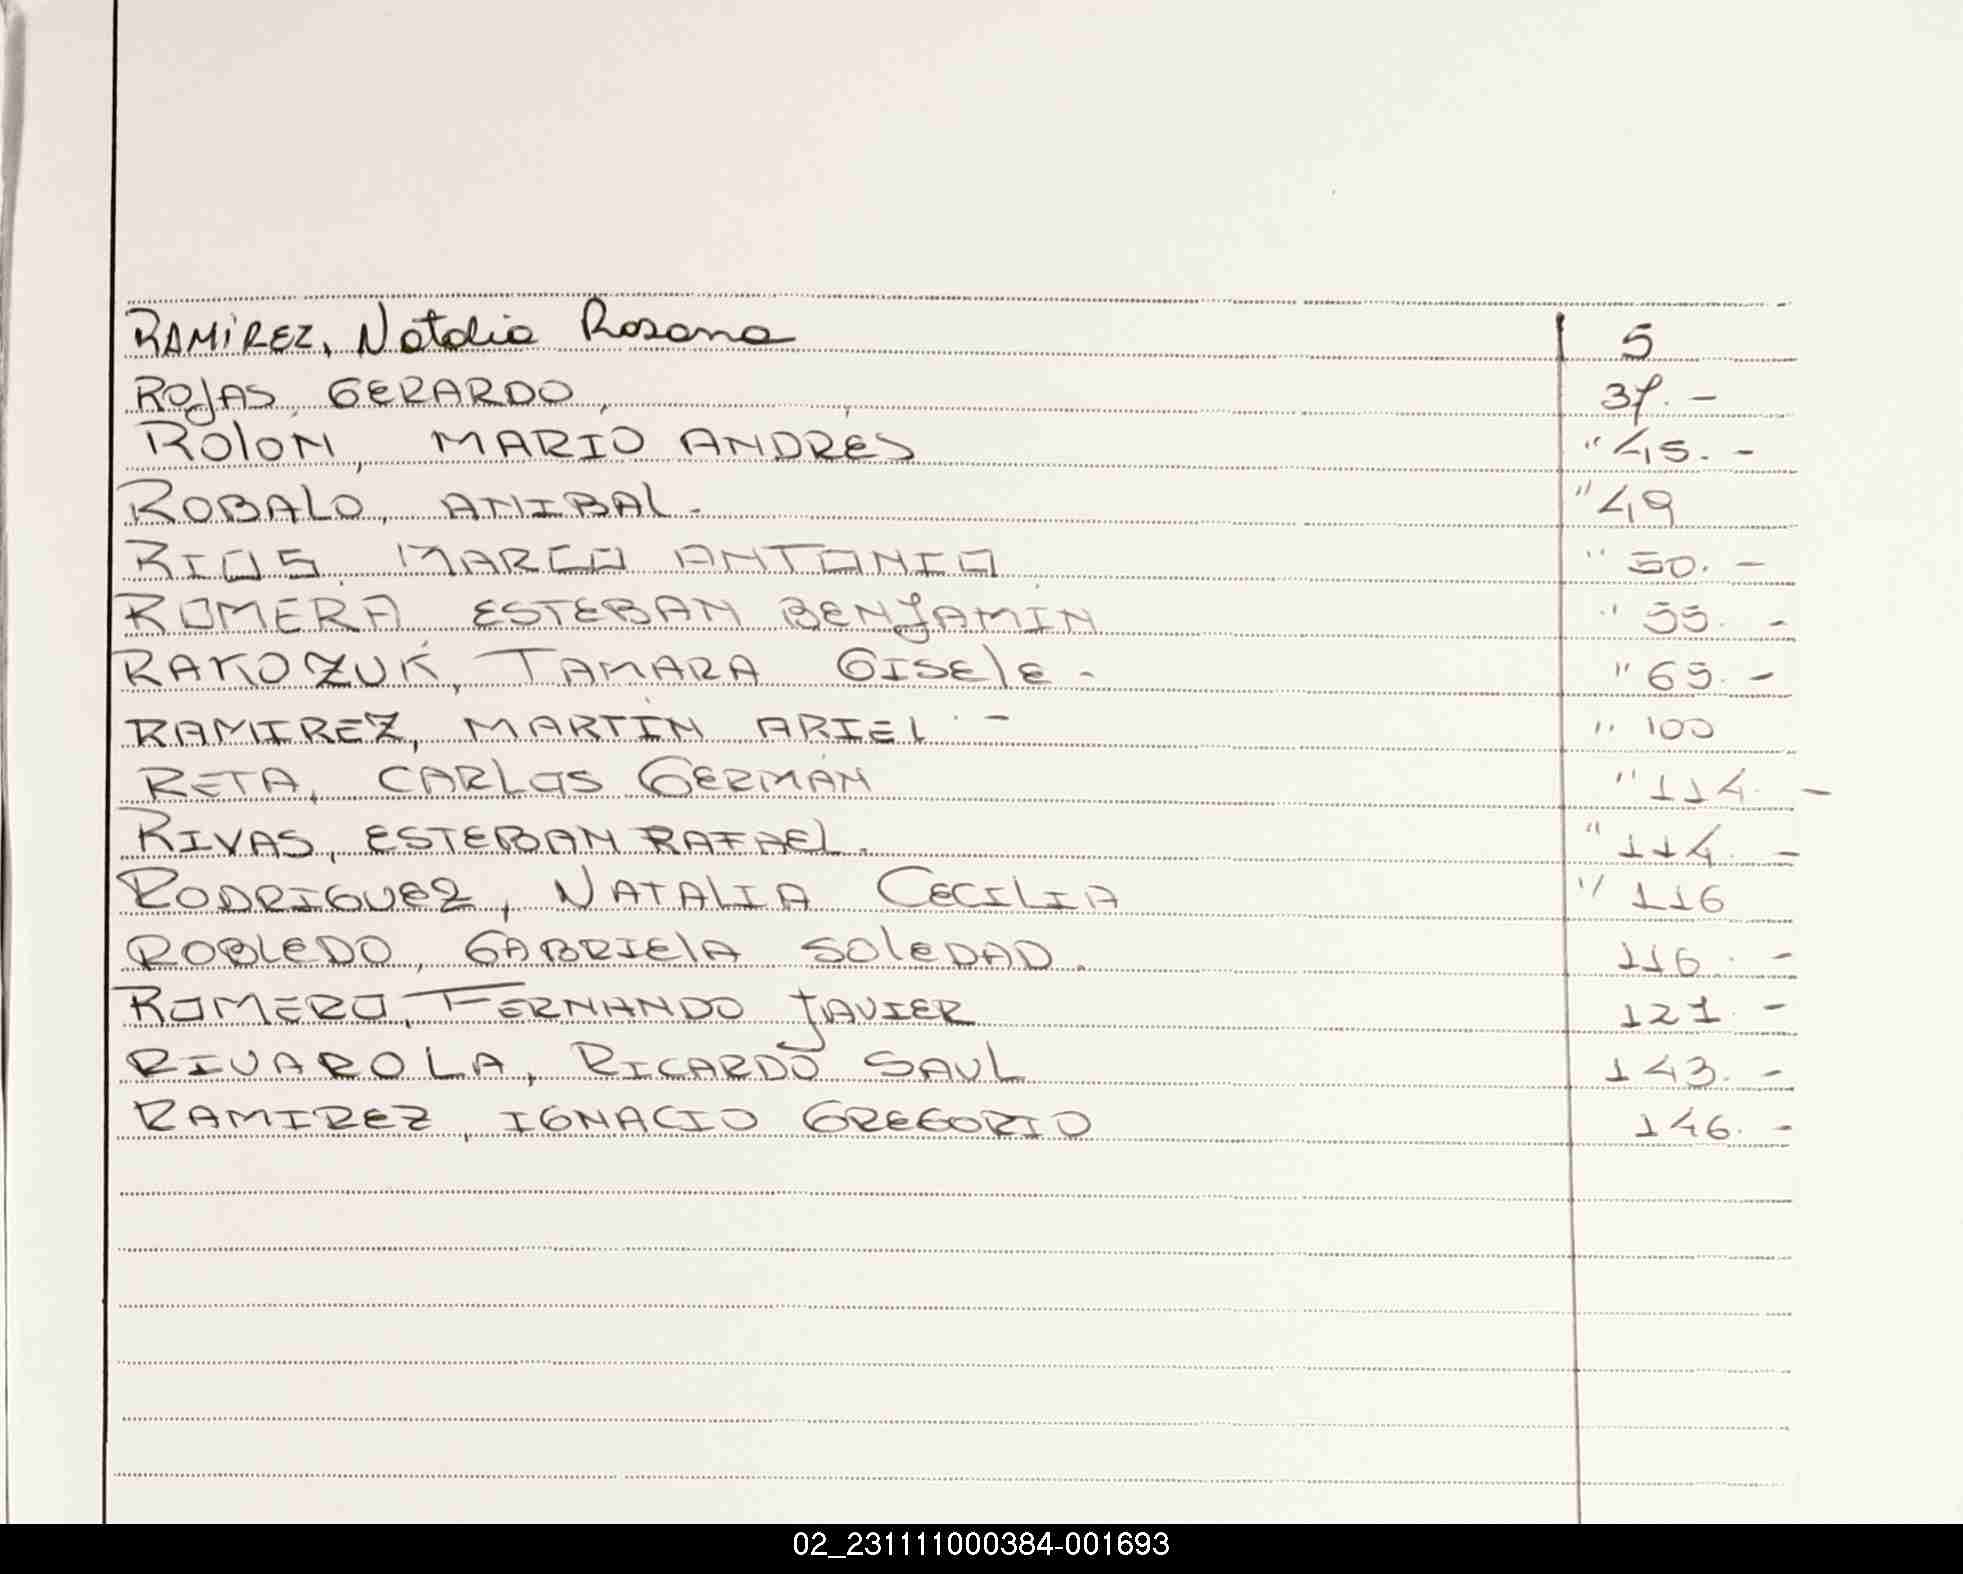 RAMÍREZ, Natalia Rosana 5
ROJAS, GERARDO, 37. -
ROLON, MARIO ANDRÉS " 45. -
ROBALO, ANIBAL. " 49
RIOS, MARCO ANTONIO " 50. -
ROMERA, ESTEBAN BENJAMIN " 55. -
RAKOZUK, TAMARA GISELE - " 65. -
RAMIREZ, MARTÍN ARIEL. - " 100
RETA, CARLOS GERMÁN " 114. -
RIVAS, ESTEBAN RAFAEL. " 114. -
RODRIGUEZ, NATALIA CECILIA " 116
ROBLEDO, GABRIELA SOLEDAD. 116. -
ROMERO, FERNANDO JAVIER 121. -
RIVAROLA, RICARDO SAUL 143. -
RAMIREZ, IGNACIO GREGORIO 146. -
02_231111000384-001693